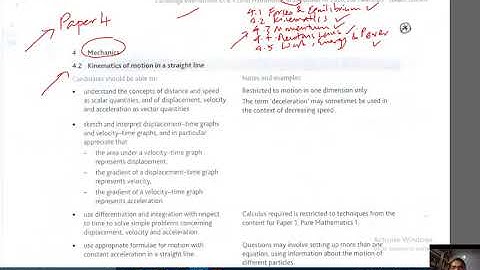 Paper 4
4.1 Forces & Equilibrium ✓
4.2 Kinematics ✓
4.3 Momentum ✓
4.4 Newton's Laws ✓
4.5 Work, Energy & Power ✓
4 Mechanics
4.2 Kinematics of motion in a straight line
Candidates should be able to:
Notes and examples
• understand the concepts of distance and speed
as scalar quantities, and of displacement, velocity
and acceleration as vector quantities
Restricted to motion in one dimension only
The term 'deceleration' may sometimes be used in
the context of decreasing speed.
• sketch and interpret displacement–time graphs
and velocity–time graphs, and in particular
appreciate that
– the area under a velocity–time graph
represents displacement,
– the gradient of a displacement–time graph
represents velocity,
– the gradient of a velocity–time graph
represents acceleration
• use differentiation and integration with respect
to time to solve simple problems concerning
displacement, velocity and acceleration
Calculus required is restricted to techniques from the
content for Paper 1: Pure Mathematics 1.
• use appropriate formulae for motion with
constant acceleration in a straight line.
Questions may involve setting up more than one
equation, using information about the motion of
different particles.
Activate Windows